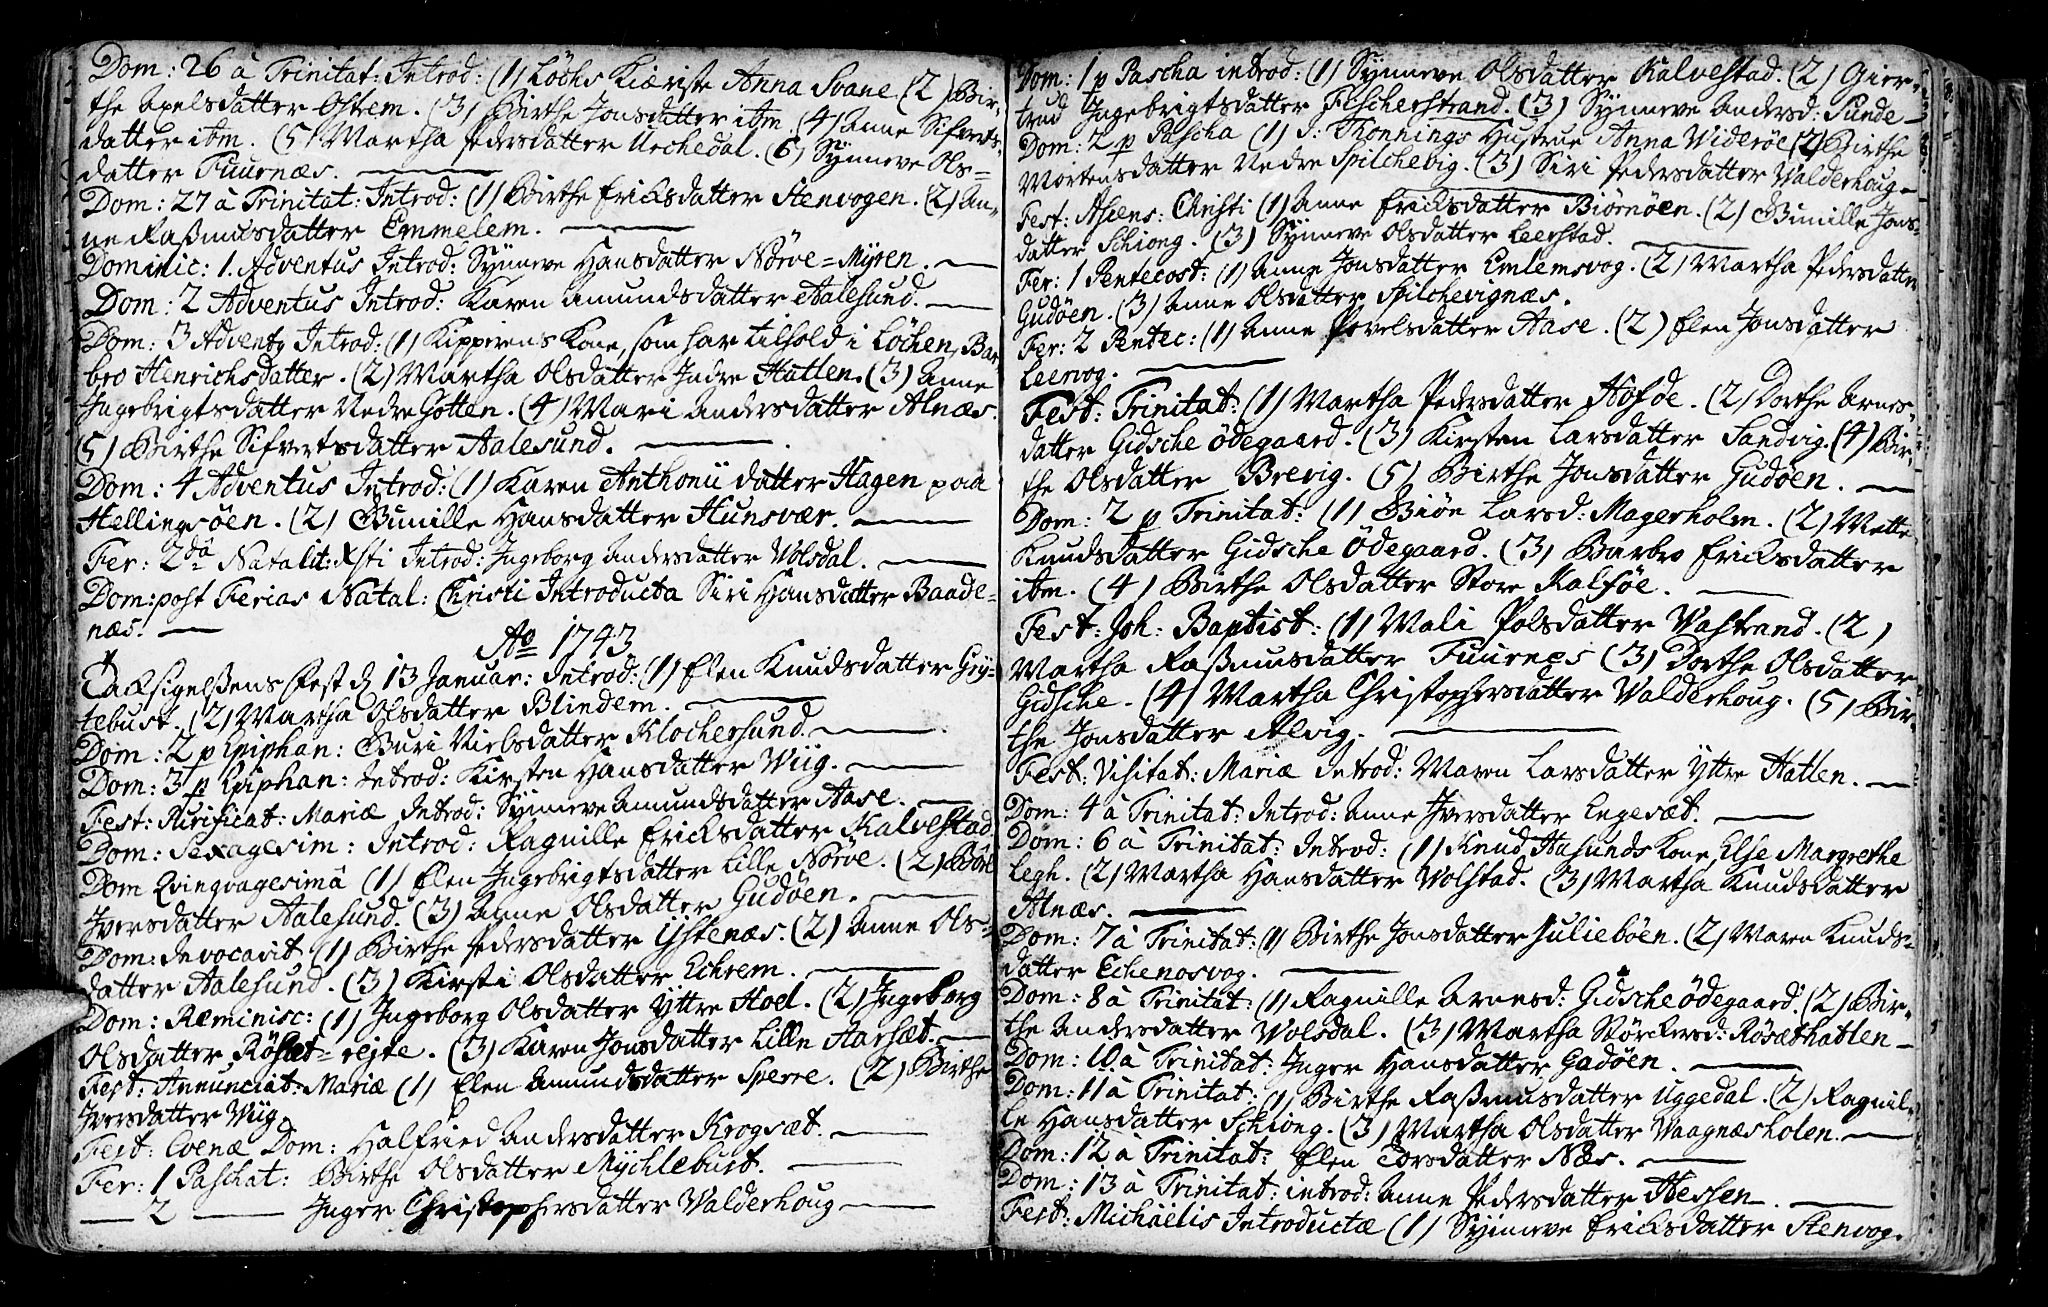 Dom: 26 à Trinitat: Introd: (1) Löchs Kiæriste Anna Svane (2) Bir-
the Axelsdatter Ostrem. (3) Birthe Jonsdatter ibm. (4) Anne Siferts-
datter ibm. (5) Martha Pedersdatter Uechedal. (6) Synneve Ols=
datter Fuurnæs.
Dom: 27 à Trinitat: Introd: (1) Birthe Ericksdatter Stenvogen. (2) An-
ne Raßmusdatter Emmelem.
Dominic: 1. Adventus Introd: Synneve Hansdatter Nörve=Myren.
Dom: 2 Adventus Introd: Karen Amundsdatter Aalesund.
Dom: 3 Advent9 Introd: (1) Kipperens Kone, som har tilhold i Löchen, Bar-
bro Henrichsdatter. (2) Martha Olsdatter Indre Hatlen. (3) Anne
Ingebrigtsdatter Nedre Gotten. (4) Mari Andersdatter Alnæs.
(5) Birthe Sifvertsdatter Aalesund.
Dom: 4 Adventus Introd: (1) Karen Anthonii datter Hagen paa
Hellingsöen. (2) Gunille Hansdatter Hunsvær.
Fer: 2dâ Natalit: Xsti Introd: Ingeborg Andersdatter Volsdal.
Dom: post Ferias Natal: Christi Introducta Siri Hansdatter Baade=
næs.
Ao 1743
Taksigelßens Fest d 13 Januar: Introd: (1) Elen Knudsdatter Gry-
tebust. (2) Martha Olsdatter Blindem.
Dom: 2 p Epiphan: Guri Nielsdatter Klochersund.
Dom: 3 p Epiphan: Introd: Kirsten Hansdatter Wiig.
Fest: Purificat: Mariæ Introd: Synneve Amundsdatter Aase.
Dom: Sexagesim: Introd: Ragnille Ericksdatter Kalvestad
Dom Qvinqvagesimâ (1) Elen Ingebrigtsdatter Lille Nörve. (2)
Iversdatter Aalesund. (3) Anne Olsdatter Gudöen.
Dom: Invocavit (1) Birthe Pedersdatter Ystenæs. (2) Anne Ols-
datter Aalesund. (3) Kirsti Olsdatter Echrem.
Dom: Reminisc: (1) Ingeborg Olsdatter Yttre Hoel. (2) Ingeborg
Olsdatter Röset=rejte. (3) Karen Jonsdatter Lille Aarsæt.
Fest: Annunciat: Mariæ (1) Elen Amundsdatter Sperre. (2) Birthe
Iversdatter Wiig
Fest: Coenæ Dom: Halfried Andersdatter Krogsæt.
Fer: 1 Paschat: Birthe Olsdatter Mychlebust.
— 2 — Inger Christophersdatter Valderhoug
Dom: 1 p Pascha introd: (1) Synneve Olsdatter Kalvestad. (2) Gier-
trud Ingebrigtsdatter Fischerstrand. (3) Synneve Andersd: Sunde-
Dom: 2 p Pascha (1) S: Thonnings Hustrue Anna Widerøe (2) Birthe
Mortensdatter Nedre Spilchevig. (3) Siri Pedersdatter Valderhoug
Fest: Ascens: Christi (1) Anne Ericksdatter Biörnöen. (2) Gunille Jons-
datter Schiong. (3) Synneve Olsdatter Leerstad.
Fer: 1 Pentecost: (1) Anne Jonsdatter Emlemsvog. (2) Martha Pedersdatter
Gudöen. (3) Anne Olsdatter Spilchevignæs.
Fer: 2 Pentec: (1) Anne Povelsdatter Aase. (2) Elen Jonsdatter
Leervog.
Fest: Trinitat: (1) Martha Pedersdatter Hofde. (2) Dorthe Arnes-
datter Gidsche Ödegaard. (3) Kirsten Larsdatter Sandvig. (4) Bir-
the Olsdatter Brevig. (5) Birthe Jonsdatter Gudöen.
Dom: 2 p Trinitat: (1) Giöe Larsd: Magerholm. (2) Mette
Knudsdatter Gidsche Ödegaard. (3) Barbro Ericksdatter
ibm. (4) Birthe Olsdatter Store Kalföe.
Fest: Joh: Baptist: (1) Mali Polsdatter Vastrand. (2)
Martha Raßmusdatter Fuurnes (3) Dorthe Olsdatter
Gidsche. (4) Martha Christophersdatter Valderhoug. (5) Bir-
the Jonsdatter Alvig.
Fest: Visitat: Mariæ Introd: Maren Larsdatter Yttre Hatlen.
Dom: 4 à Trinitat: Introd: Anne Iversdatter Engesæt.
Dom: 6 à Trinitat: Introd: (1) Knud Aasunds Kone Else Margrethe
Legh. (2) Martha Hansdatter Volstad. (3) Martha Knudsdatter
Alnæs.
Dom: 7 à Trinitat: (1) Birthe Jonsdatter Julieböen. (2) Maren Knuds-
datter Echenosvog.
Dom: 8 à Trinitat: (1) Ragnille Arnesd: Gidsche Ödegaard. (2) Bir-
the Andersdatter Volsdal. (3) Martha Störchersd: Rösæthatlen
Dom: 10 à Trinitat: Inger Hansdatter Gadöen.
Dom: 11 à Trinitat: (1) Birthe Raßmusdatter Uggedal. (2) Ragnil-
le Hansdatter Schiong. (3) Martha Olsdatter Vaagnæsholen.
Dom: 12 à Trinitat: Elen Torsdatter Næs.
Dom: 13 à Trinitat: introd: Anne Pedersdatter Hessen.
Fest: Michäelis Introductæ (1) Synneve Ericksdatter Stenvog.